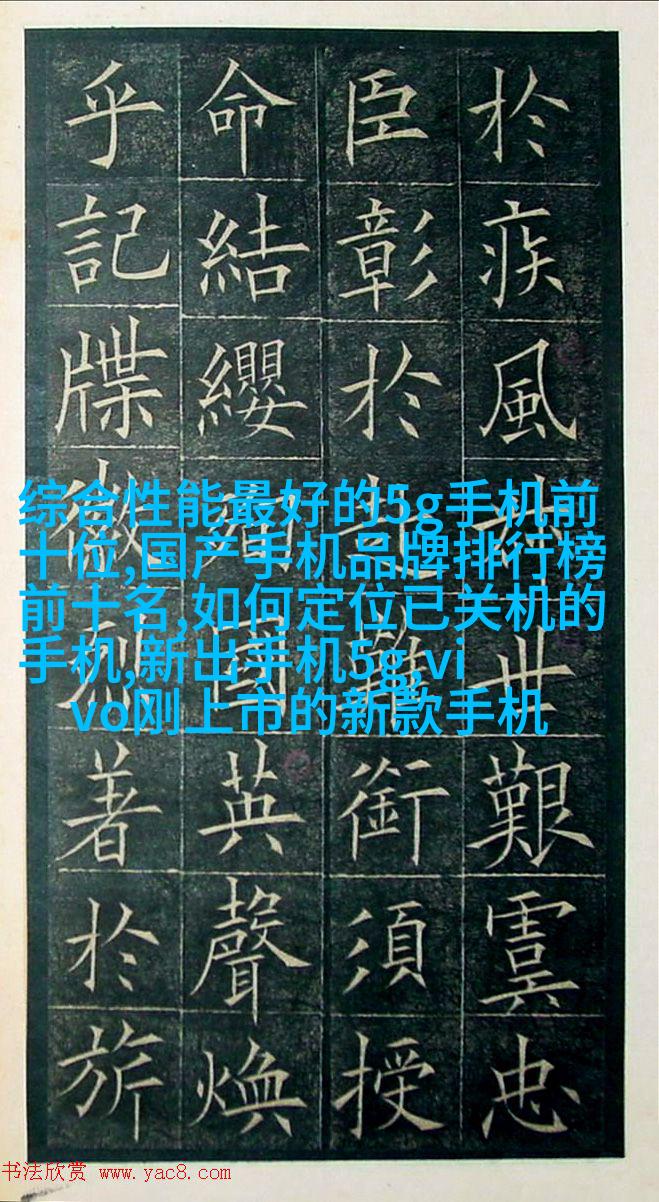 於疾風叔世艱虞忠
臣彰於赴難銜須授
命結纓殉國英聲煥
乎記牒徽烈著於旂
综合性能最好的5g手机前
十位,国产手机品牌排行榜
前十名,如何定位已关机的
手机,新出手机5g,vi
vo刚上市的新款手机
书法欣赏 www.yac8.com